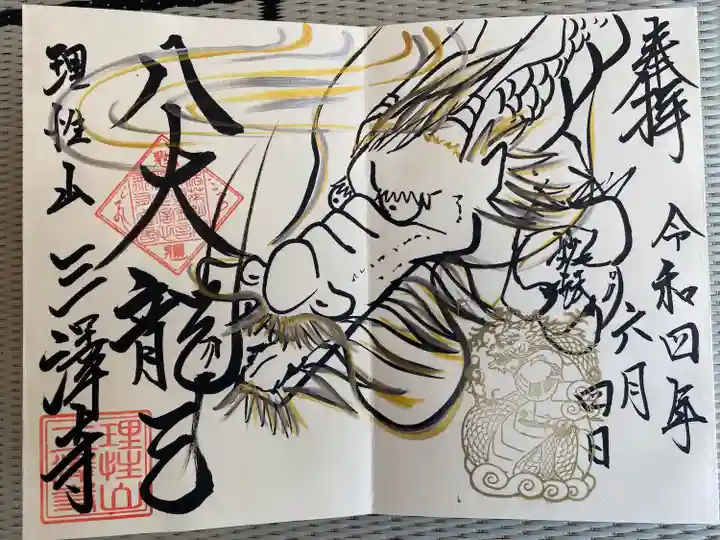 奉拝
令和四年
六月
四日
八大龍王
理性山
三澤寺
理性山